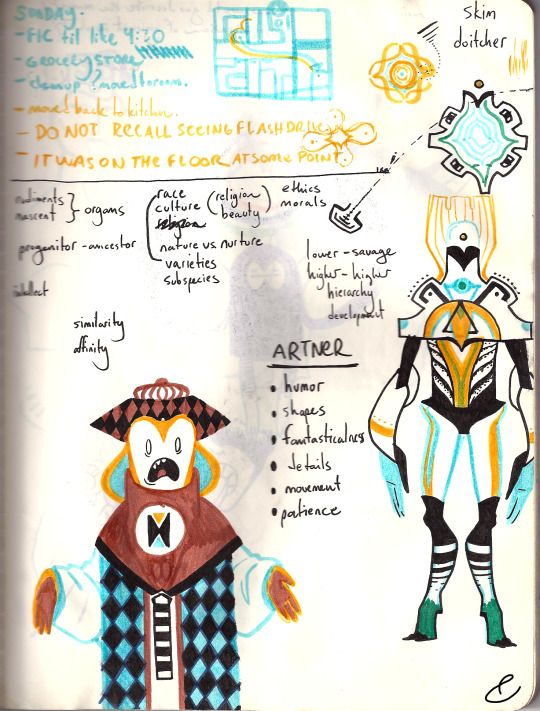 SUNDAY:
- FIC fil like 4:30
- GROCERY STORE
- cleanup / moved to room.
- moved back to kitchen.
- DO NOT RECALL SEEING FLASHDRIVE
- IT WAS ON THE FLOOR AT SOME POINT
skim
doitcher
rudiments
nascent
organs
progenitor - ancestor
intellect
similarity
affinity
race
culture
religion
(religion
beauty)
nature vs. nurture
varieties
subspecies
ethics
morals
lower - savage
higher - higher
hierarchy
development
ARTNER
• humor
• shapes
• fantasticalness
• details
• movement
• patience